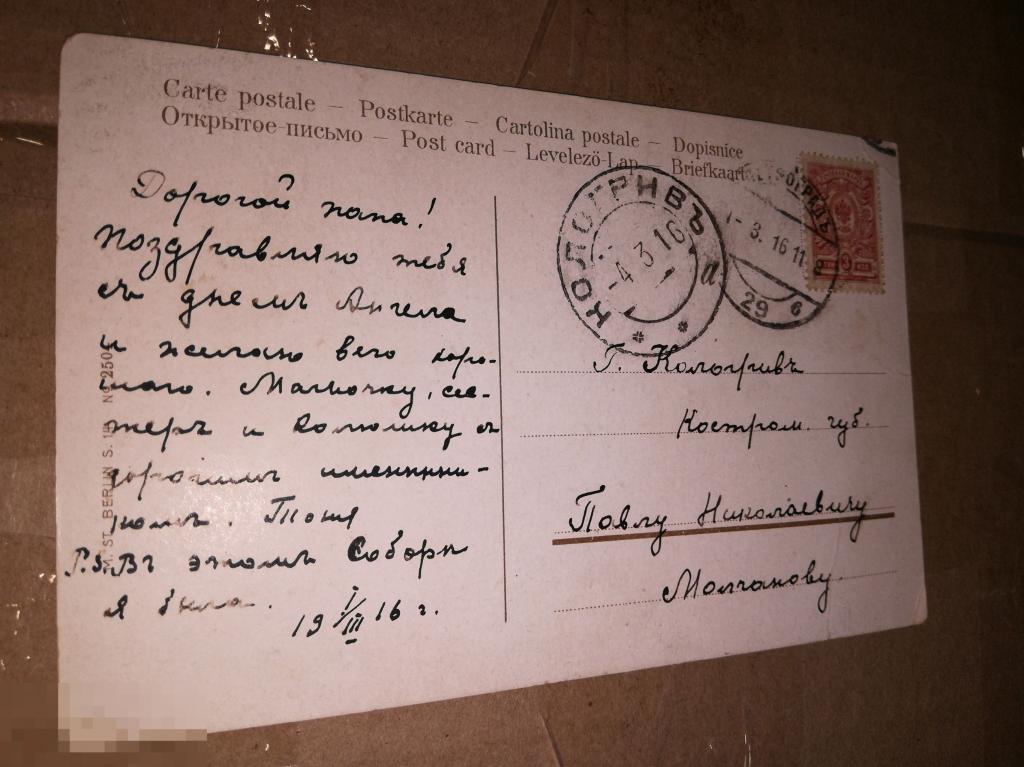 Carte postale – Postkarte – Cartolina postale – Dopisnice
Открытое письмо – Post card – Levelező-Lap – Briefkaart
Дорогой папа!
Поздравляю тебя
съ днемъ Ангела
и желаю всего хоро-
шаго. Мамочку, се-
стеръ и Колюшку съ
дорогимъ имениннi-
комъ. Тоня
P.S. Въ этомъ Соборѣ
я была.
19 I/III 16 г.
КОЛОГРИВЪ
4 3 16
ПЕТРОГРАДЪ
1- 3. 16 11
29 6
Г. Кологривъ
Костром. губ.
Павлу Николаевичу
Молчанову.
ST. BERLIN S. No 250